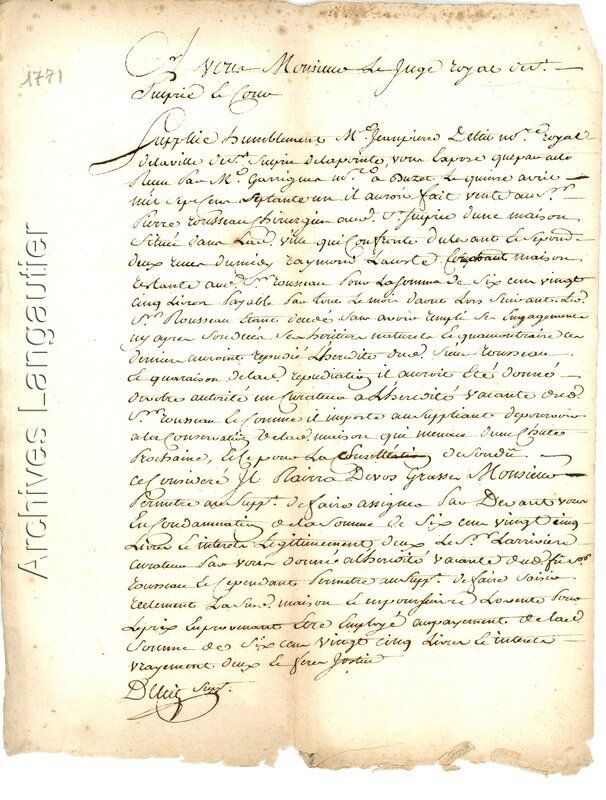 1771
A vous Monsieur Le Juge royal de St.
Sulpice Le Cour
Supplie humblement Me. Jeanpierre Deltil nore. royal
de la ville de St. Sulpice de lapointe, vous Expose que par acte
Retenu Par Me. Garrigues nore. a Buzet Le quinse avril
mil sept cens septante un il auroit fait vente au Sr.
Pierre rousseau Chirurgien aud. St. Sulpice d'une maison
Situëe dans Lad. ville qui Confronte du levant Et septend.
deux rues du midy raymond Lacoste Couchant maison
restante aud. Sr. rousseau Pour La somme de Six cens vingt
Cinq Livres Payable Par tout Le mois d'aout Lors Suivant Led.
Sr. Rousseau Etant decedé Sans avoir rempli Ses Engagements
ny apres Son deces Ses heritiers naturels Et qu'au contraire ces
derniers auroint repudié L'heredité dud. Sieur rousseau
Et qu'a raison de lad. repudiation il auroit Eté donné
de votre autorité un Curateur a L'heredité vacante dud.
Sr. rousseau Et Comme il importe au Supliant de pourvoir
a la Conservation de lad. maison qui menace d'une Chute
Prochaine, Et Ce pour La du Sindit
Ce Consideré Il Plairra De vos Graces Monsieur
Permetre au Suppt. de faire assigner Par Devant vous
En Condamnation de la Somme de Six cens vingt Cinq
Livres Et interets Legitimement deux Le Sr. Larriviere
Curateur Par vous donné a l'heredité vacante dud. feu Sr.
rousseau Et Cependant Permetre au Suppt. de faire Saisir
reelement La Susd. maison Et En poursuivre La vente Pour
Le prix En provenant Etre Employé au payement de lad.
Somme de Six cens vingt Cinq Livres Et interets
vrayement deux Et feres Justice
Deltil Suppt.
Archives Langautier